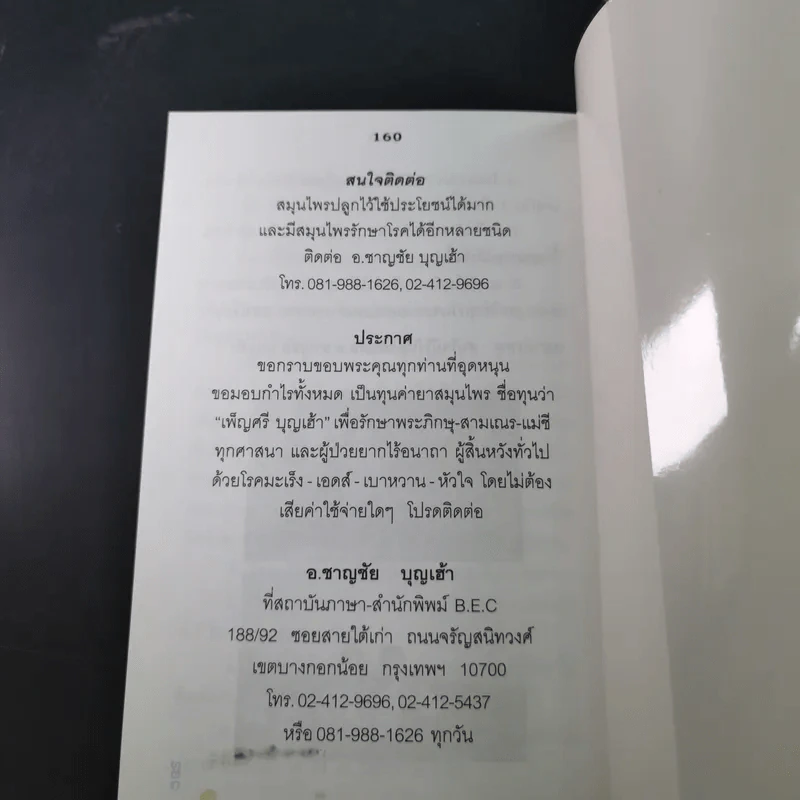 160
สนใจติดต่อ
สมุนไพรปลูกไว้ใช้ประโยชน์ได้มาก
และมีสมุนไพรรักษาโรคได้อีกหลายชนิด
ติดต่อ อ.ชาญชัย บุญเฮ้า
โทร. 081-988-1626, 02-412-9696
ประกาศ
ขอกราบขอบพระคุณทุกท่านที่อุดหนุน
ขอมอบกำไรทั้งหมด เป็นทุนค่ายาสมุนไพร ชื่อทุนว่า
“เพ็ญศรี บุญเฮ้า” เพื่อรักษาพระภิกษุ-สามเณร-แม่ชี
ทุกศาสนา และผู้ป่วยยากไร้อนาถา ผู้สิ้นหวังทั่วไป
ด้วยโรคมะเร็ง - เอดส์ - เบาหวาน - หัวใจ โดยไม่ต้อง
เสียค่าใช้จ่ายใดๆ โปรดติดต่อ
อ.ชาญชัย บุญเฮ้า
ที่สถาบันภาษา-สำนักพิพม์ B.E.C
188/92 ซอยสายใต้เก่า ถนนจรัญสนิทวงศ์
เขตบางกอกน้อย กรุงเทพฯ 10700
โทร. 02-412-9696, 02-412-5437
หรือ 081-988-1626 ทุกวัน